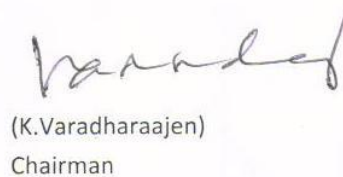 (K.Varadharaajen)
Chairman